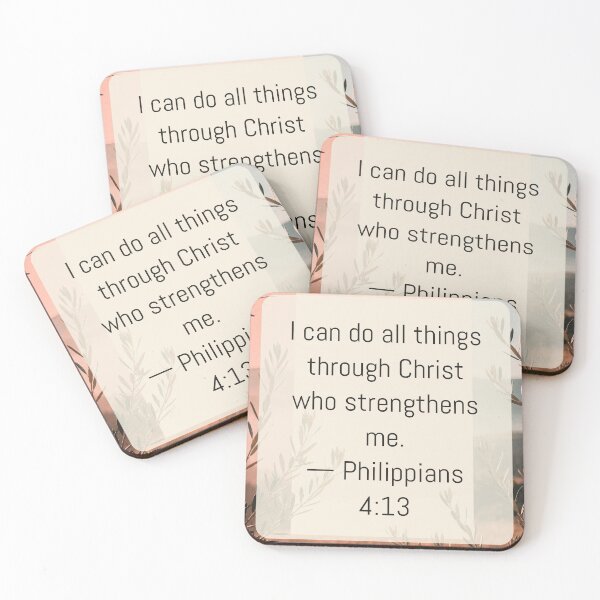 I can do all things
through Christ
who strengthens
I can do all things
through Christ
who strengthens
me.
— Philippians
I can do all things
through Christ
who strengthens
me.
— Philippi
4:13
I can do all things
through Christ
who strengthens
me.
— Philippians
4:13